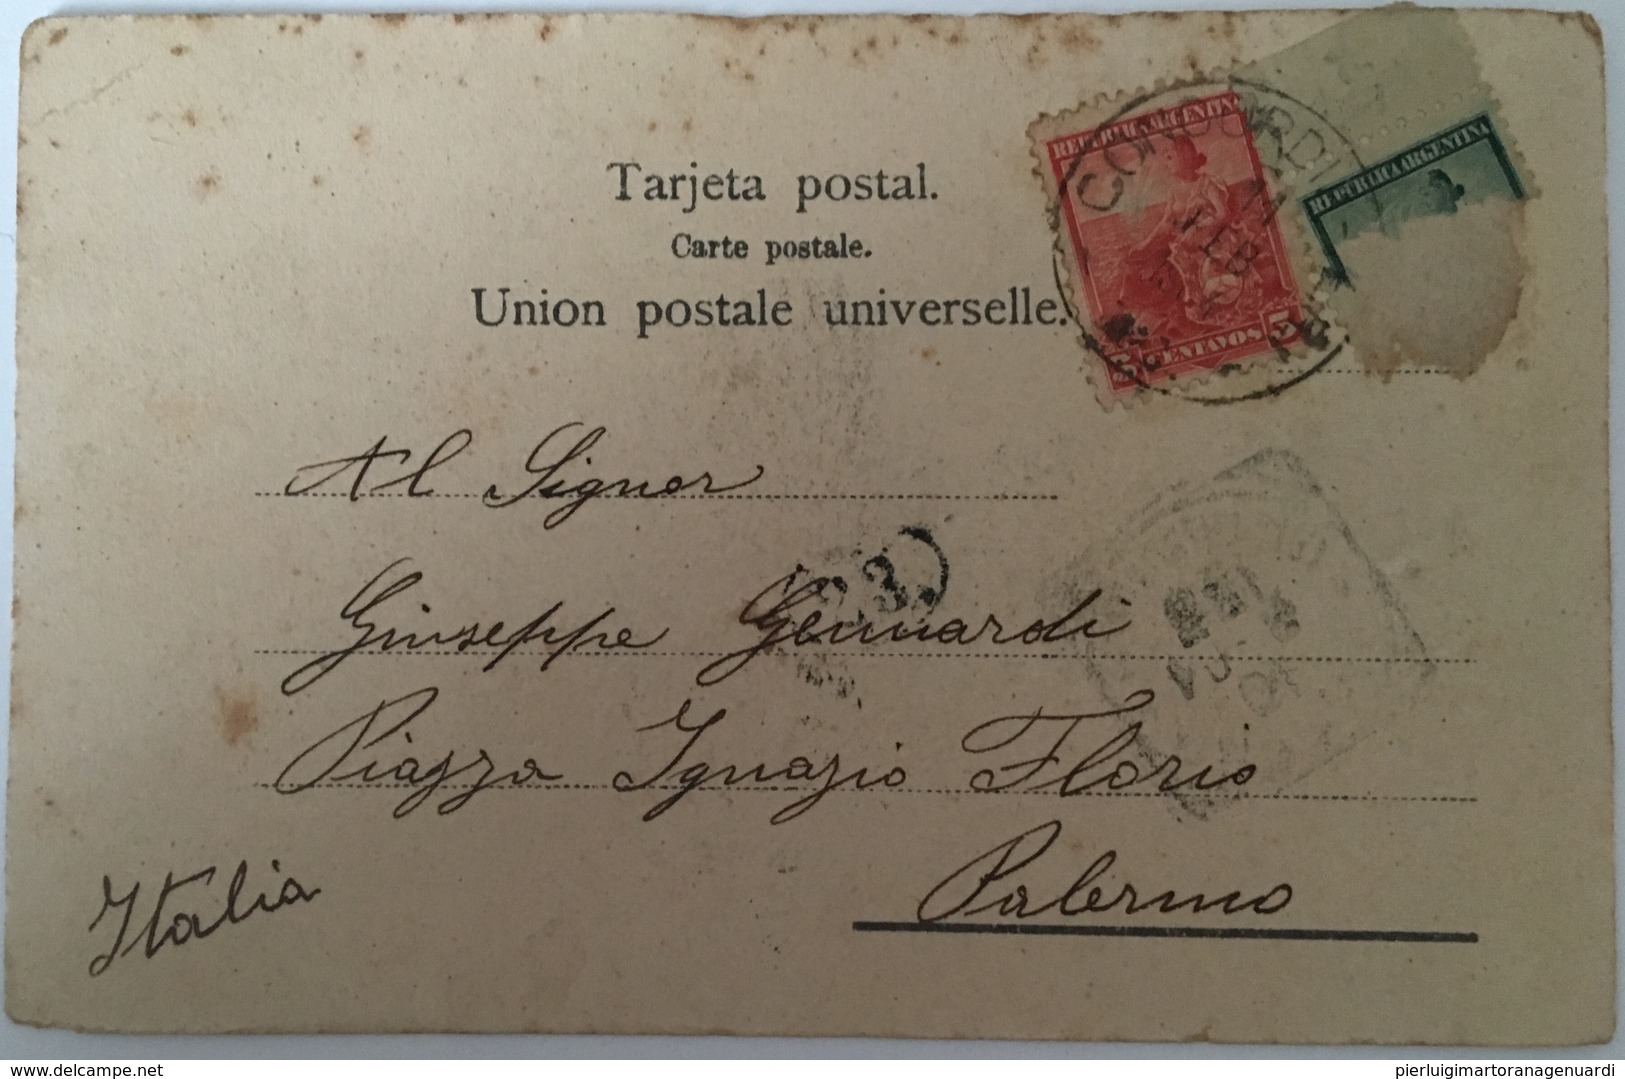 Tarjeta postal.
Carte postale.
Union postale universelle.
REPUBLICA ARGENTINA
5 CENTAVOS 5
REPUBLICA ARGENTINA
CONCORDI
11
FEB
Al Signor
23
Giuseppe Gennardi
Piazza Ignazio Florio
Palermo
Italia
http://www.delcampe.net
pierluigimartoranagenuardi